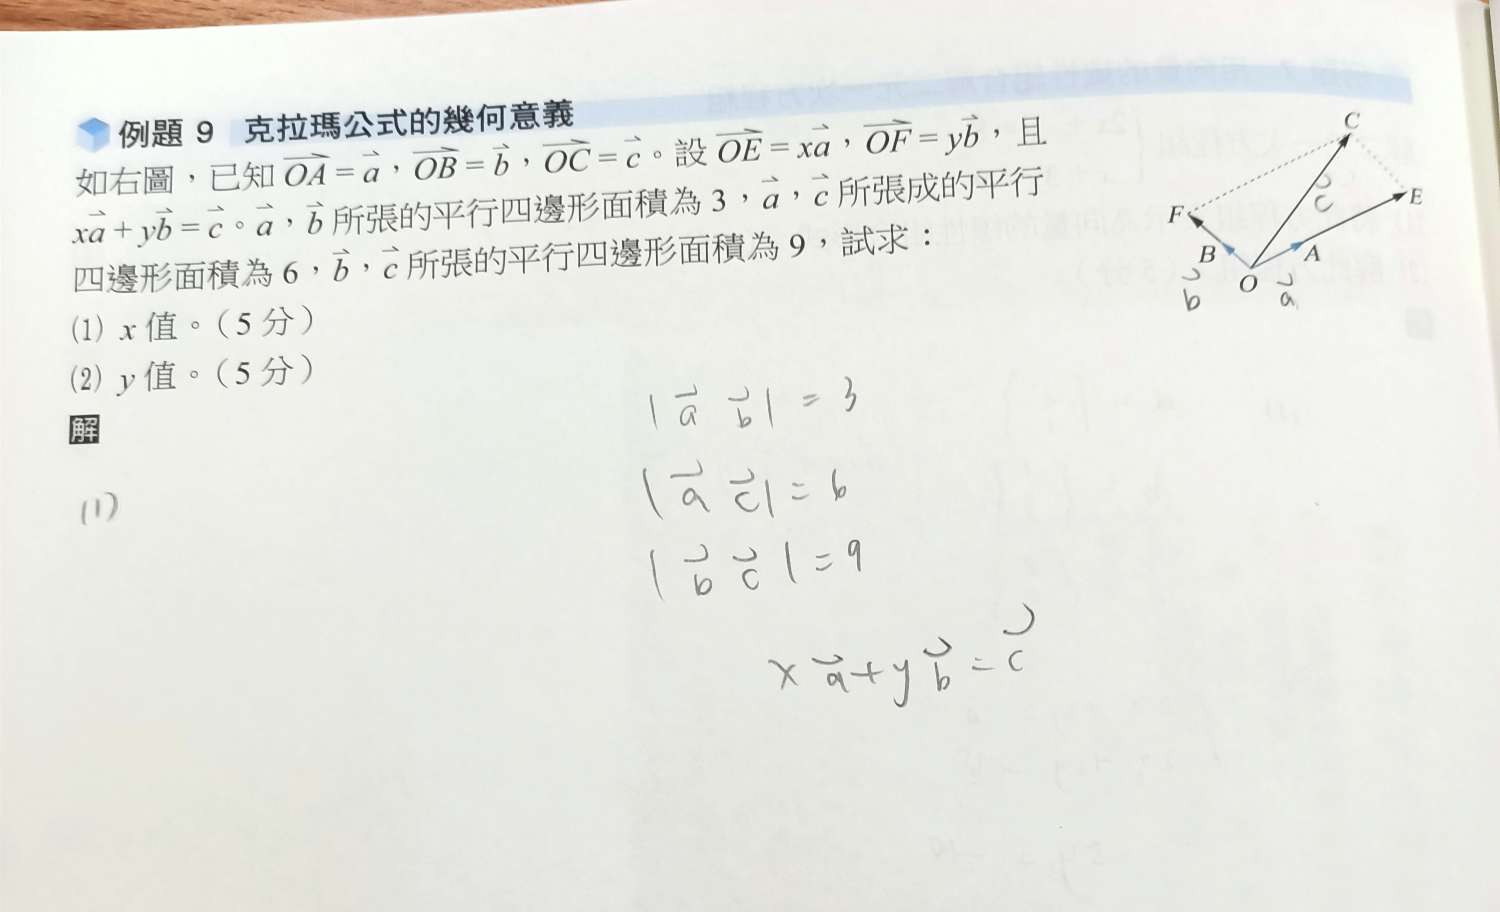 例題 9 克拉瑪公式的幾何意義
如右圖，已知 $\overrightarrow{OA}=\vec{a}$，$\overrightarrow{OB}=\vec{b}$，$\overrightarrow{OC}=\vec{c}$。設 $\overrightarrow{OE}=x\vec{a}$，$\overrightarrow{OF}=y\vec{b}$，且
$x\vec{a}+y\vec{b}=\vec{c}$。$\vec{a}$，$\vec{b}$ 所張的平行四邊形面積為 3，$\vec{a}$，$\vec{c}$ 所張成的平行
四邊形面積為 6，$\vec{b}$，$\vec{c}$ 所張的平行四邊形面積為 9，試求：
(1) x 值。（5 分）
(2) y 值。（5 分）
解
C
E
F
B
A
O
$\vec{c}$
$\vec{b}$
$\vec{a}$
$|\vec{a}\ \vec{b}|=3$
$|\vec{a}\ \vec{c}|=6$
(1)
$|\vec{b}\ \vec{c}|=9$
$x\vec{a}+y\vec{b}=\vec{c}$